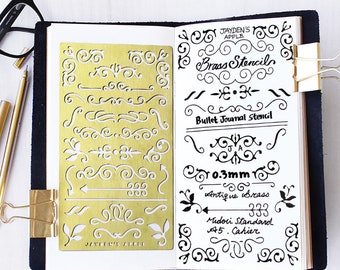 JAYDEN'S APPLE
JAYDEN'S
APPLE
Brass Stencil
Bullet Journal Stencil
0.3mm
Antique Brass
333
Midori Standard
A5. Cahier